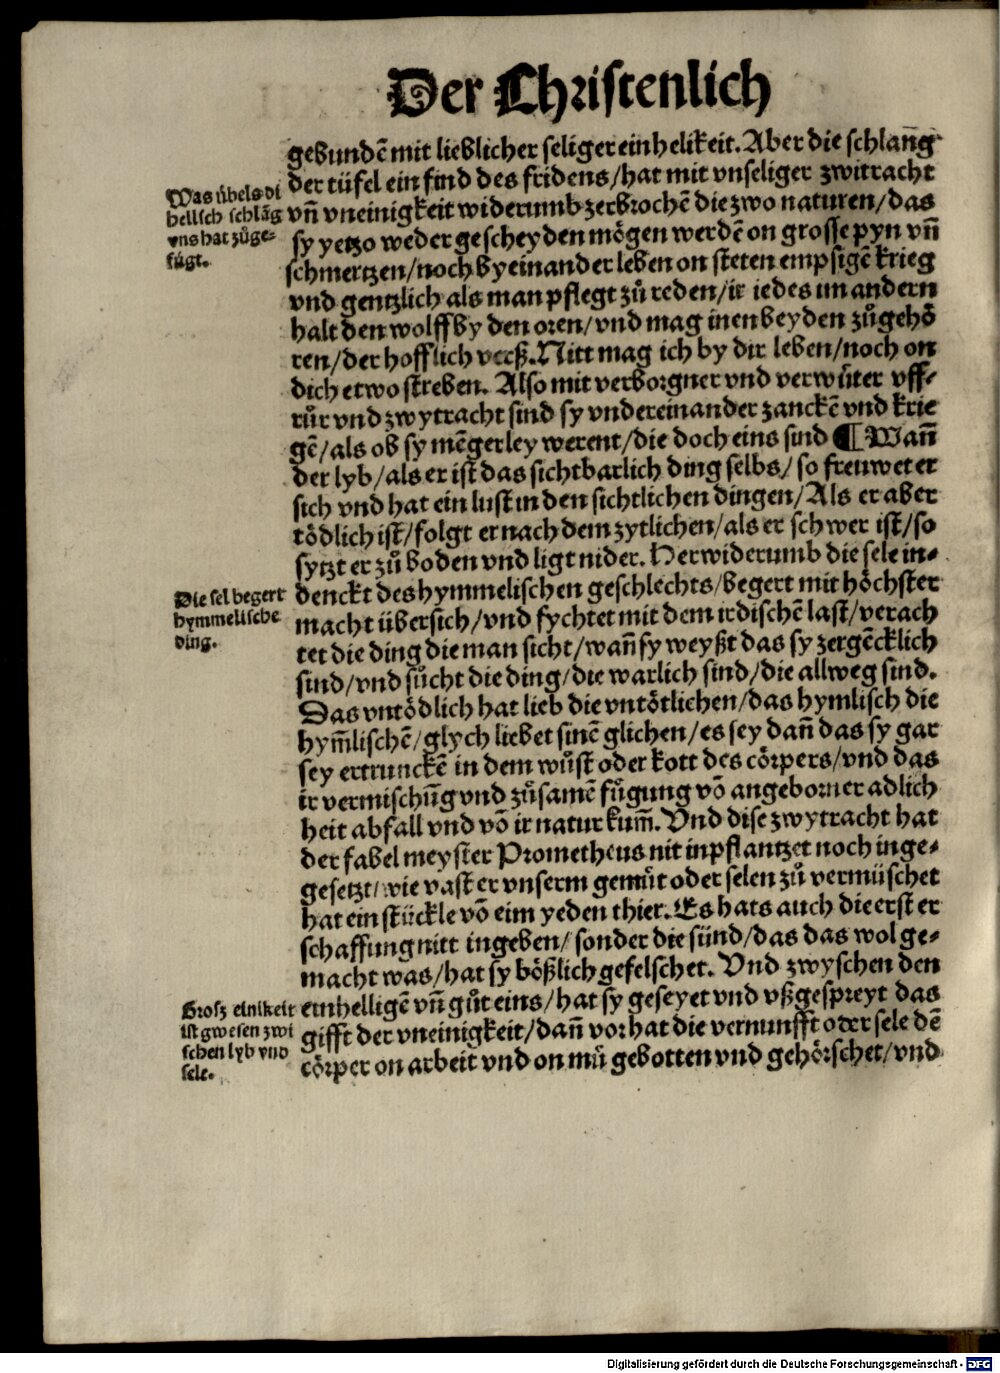 Der Christenlich
gebundē mit lieblicher seliger einhelikeit. Aber die schlañg
der tüfel ein find des fridens/hat mit vnseliger zwitracht
vn̄ vneinigkeit widerumb zerbrochē die zwo naturen/das
sy yetzo weder gescheyden mögen werdē on grosse pyn vn̄
schmertzen/noch byeinander leben on steten empsigē krieg
vnd gentzlich als man pflegt zů reden/ir iedes im andern
halt den wolff by den oren/vnd mag inen beyden zůgehö
ren/der hofflich verß. Nitt mag ich by dir leben/noch on
dich etwo streben. Also mit verborgner vnd verwůter vff-
růr vnd zwytracht sind sy vndereinander zanckē vnd krie
gē/als ob sy mēgerley werent/die doch eins sind ¶ Wañ
der lyb/als er ist das sichtbarlich ding selbs/so freuwet er
sich vnd hat ein lust in den sichtlichen dingen/Als er aber
tödlich ist/folgt er nach dem zytlichen/als er schwer ist/so
sytzt er zů boden vnd ligt nider. Herwiderumb die sele in-
denckt des hymmelischen geschlechts/begert mit höchster
macht übersich/vnd fychtet mit dem irdischē last/verach
tet die ding die man sicht/wañ sy weyßt das sy zergēcklich
sind/vnd sůcht die ding/die warlich sind/die allweg sind.
Das vntödlich hat lieb die vntötlichen/das hymlisch die
hym̄lischē/glych liebet sinē glichen/es sey dañ das sy gar
sey ertrunckē in dem wůst oder kott des cörpers/vnd das
ir vermischūg vnd zůsamē fůgung vō angeborner adlich
heit abfall vnd vō ir natur kum̄. Vnd dise zwytracht hat
der fabel meyster Prometheus nit inpflantzet noch inge-
gesetzt/wie vast er vnserm gemůt oder selen zů vermüschet
hat ein stückle vō eim yeden thier. Es hats auch die erst er
schaffung nitt ingeben/sonder die sünd/das das wol ge-
macht was/hat sy bößlich gefelschet. Vnd zwyschen den
einhelligē vn̄ gůt eins/hat sy geseyet vnd vßgespreyt das
gifft der vneinigkeit/dañ vor hat die vernunfft oder sele dē
cörper on arbeit vnd on mů gebotten vnd gehörschet/vnd
Was übels di
hellsch schlāg
vns hat zůge-
fügt.
Die sel begert
hymmelische
ding.
Grosz einikeit
ist gwesen zwi
schen lyb vnd
sele.
Digitalisierung gefördert durch die Deutsche Forschungsgemeinschaft - DFG